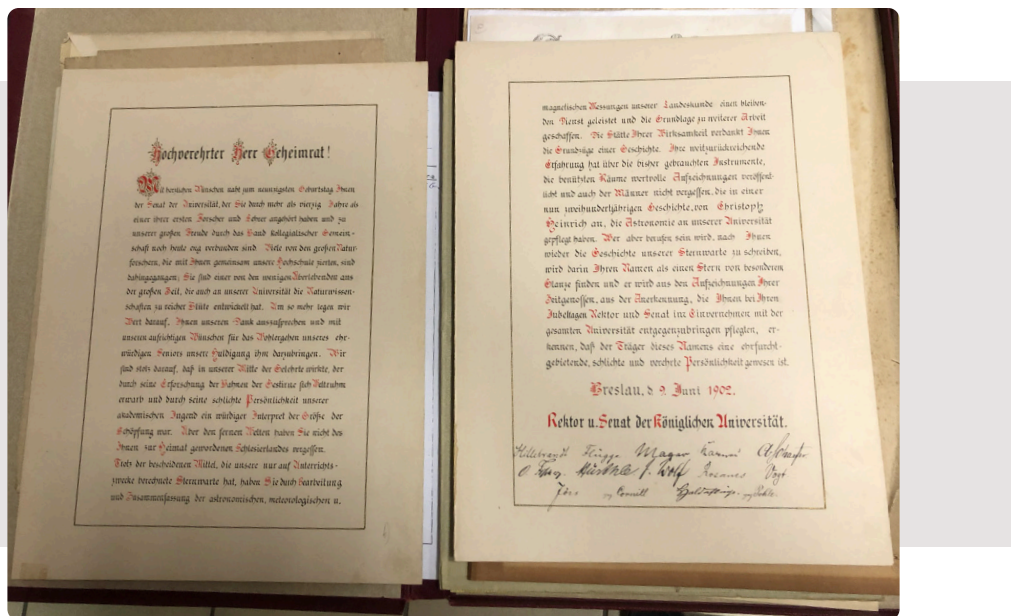 Hochverehrter Herr Geheimrat!
Mit herzlichen Wünschen naht zum neunzigsten Geburtstag Ihnen
der Senat der Universität, der Sie durch mehr als vierzig Jahre als
einer ihrer ersten Forscher und Lehrer angehört haben und zu
unserer großen Freude durch das Band kollegialischer Gemein-
schaft noch heute eng verbunden sind. Viele von den großen Natur-
forschern, die mit Ihnen gemeinsam unsere Hochschule zierten, sind
dahingegangen; Sie sind einer von den wenigen Überlebenden aus
der großen Zeit, die auch an unserer Universität die Naturwissen-
schaften zu reicher Blüte entwickelt hat. Um so mehr legen wir
Wert darauf, Ihnen unseren Dank auszusprechen und mit
unseren aufrichtigen Wünschen für das Wohlergehen unseres ehr-
würdigen Seniors unsere Huldigung ihm darzubringen. Wir
sind stolz darauf, daß in unserer Mitte der Gelehrte wirkte, der
durch seine Erforschung der Bahnen der Gestirne sich Weltruhm
erwarb und durch seine schlichte Persönlichkeit unserer
akademischen Jugend ein würdiger Interpret der Größe der
Schöpfung war. Über den fernen Welten haben Sie nicht des
Ihnen zur Heimat gewordenen Schlesierlandes vergessen.
Trotz der bescheidenen Mittel, die unsere nur auf Unterrichts-
zwecke berechnete Sternwarte hat, haben Sie durch Bearbeitung
und Zusammenfassung der astronomischen, meteorologischen u.
magnetischen Messungen unserer Landeskunde einen bleiben-
den Dienst geleistet und die Grundlage zu weiterer Arbeit
geschaffen. Die Stätte Ihrer Wirksamkeit verdankt Ihnen
die Grundzüge einer Geschichte. Ihre weitzurückreichende
Erfahrung hat über die bisher gebrauchten Instrumente,
die benützten Räume wertvolle Aufzeichnungen veröffent-
licht und auch der Männer nicht vergessen, die in einer
nun zweihundertjährigen Geschichte, von Christoph
Heinrich an, die Astronomie an unserer Universität
gepflegt haben. Wer aber berufen sein wird, nach Ihnen
wieder die Geschichte unserer Sternwarte zu schreiben,
wird darin Ihren Namen als einen Stern von besonderen
Glanze finden und er wird aus den Aufzeichnungen Ihrer
Zeitgenossen, aus der Anerkennung, die Ihnen bei Ihren
Jubeltagen Rektor und Senat im Einvernehmen mit der
gesamten Universität entgegenzubringen pflegten, er-
kennen, daß der Träger dieses Namens eine ehrfurcht-
gebietende, schlichte und verehrte Persönlichkeit gewesen ist.
Breslau, d. 9. Juni 1902.
Rektor u. Senat der Königlichen Universität.
Hillebrandt Flügge Mayer
Wolf Rosanes